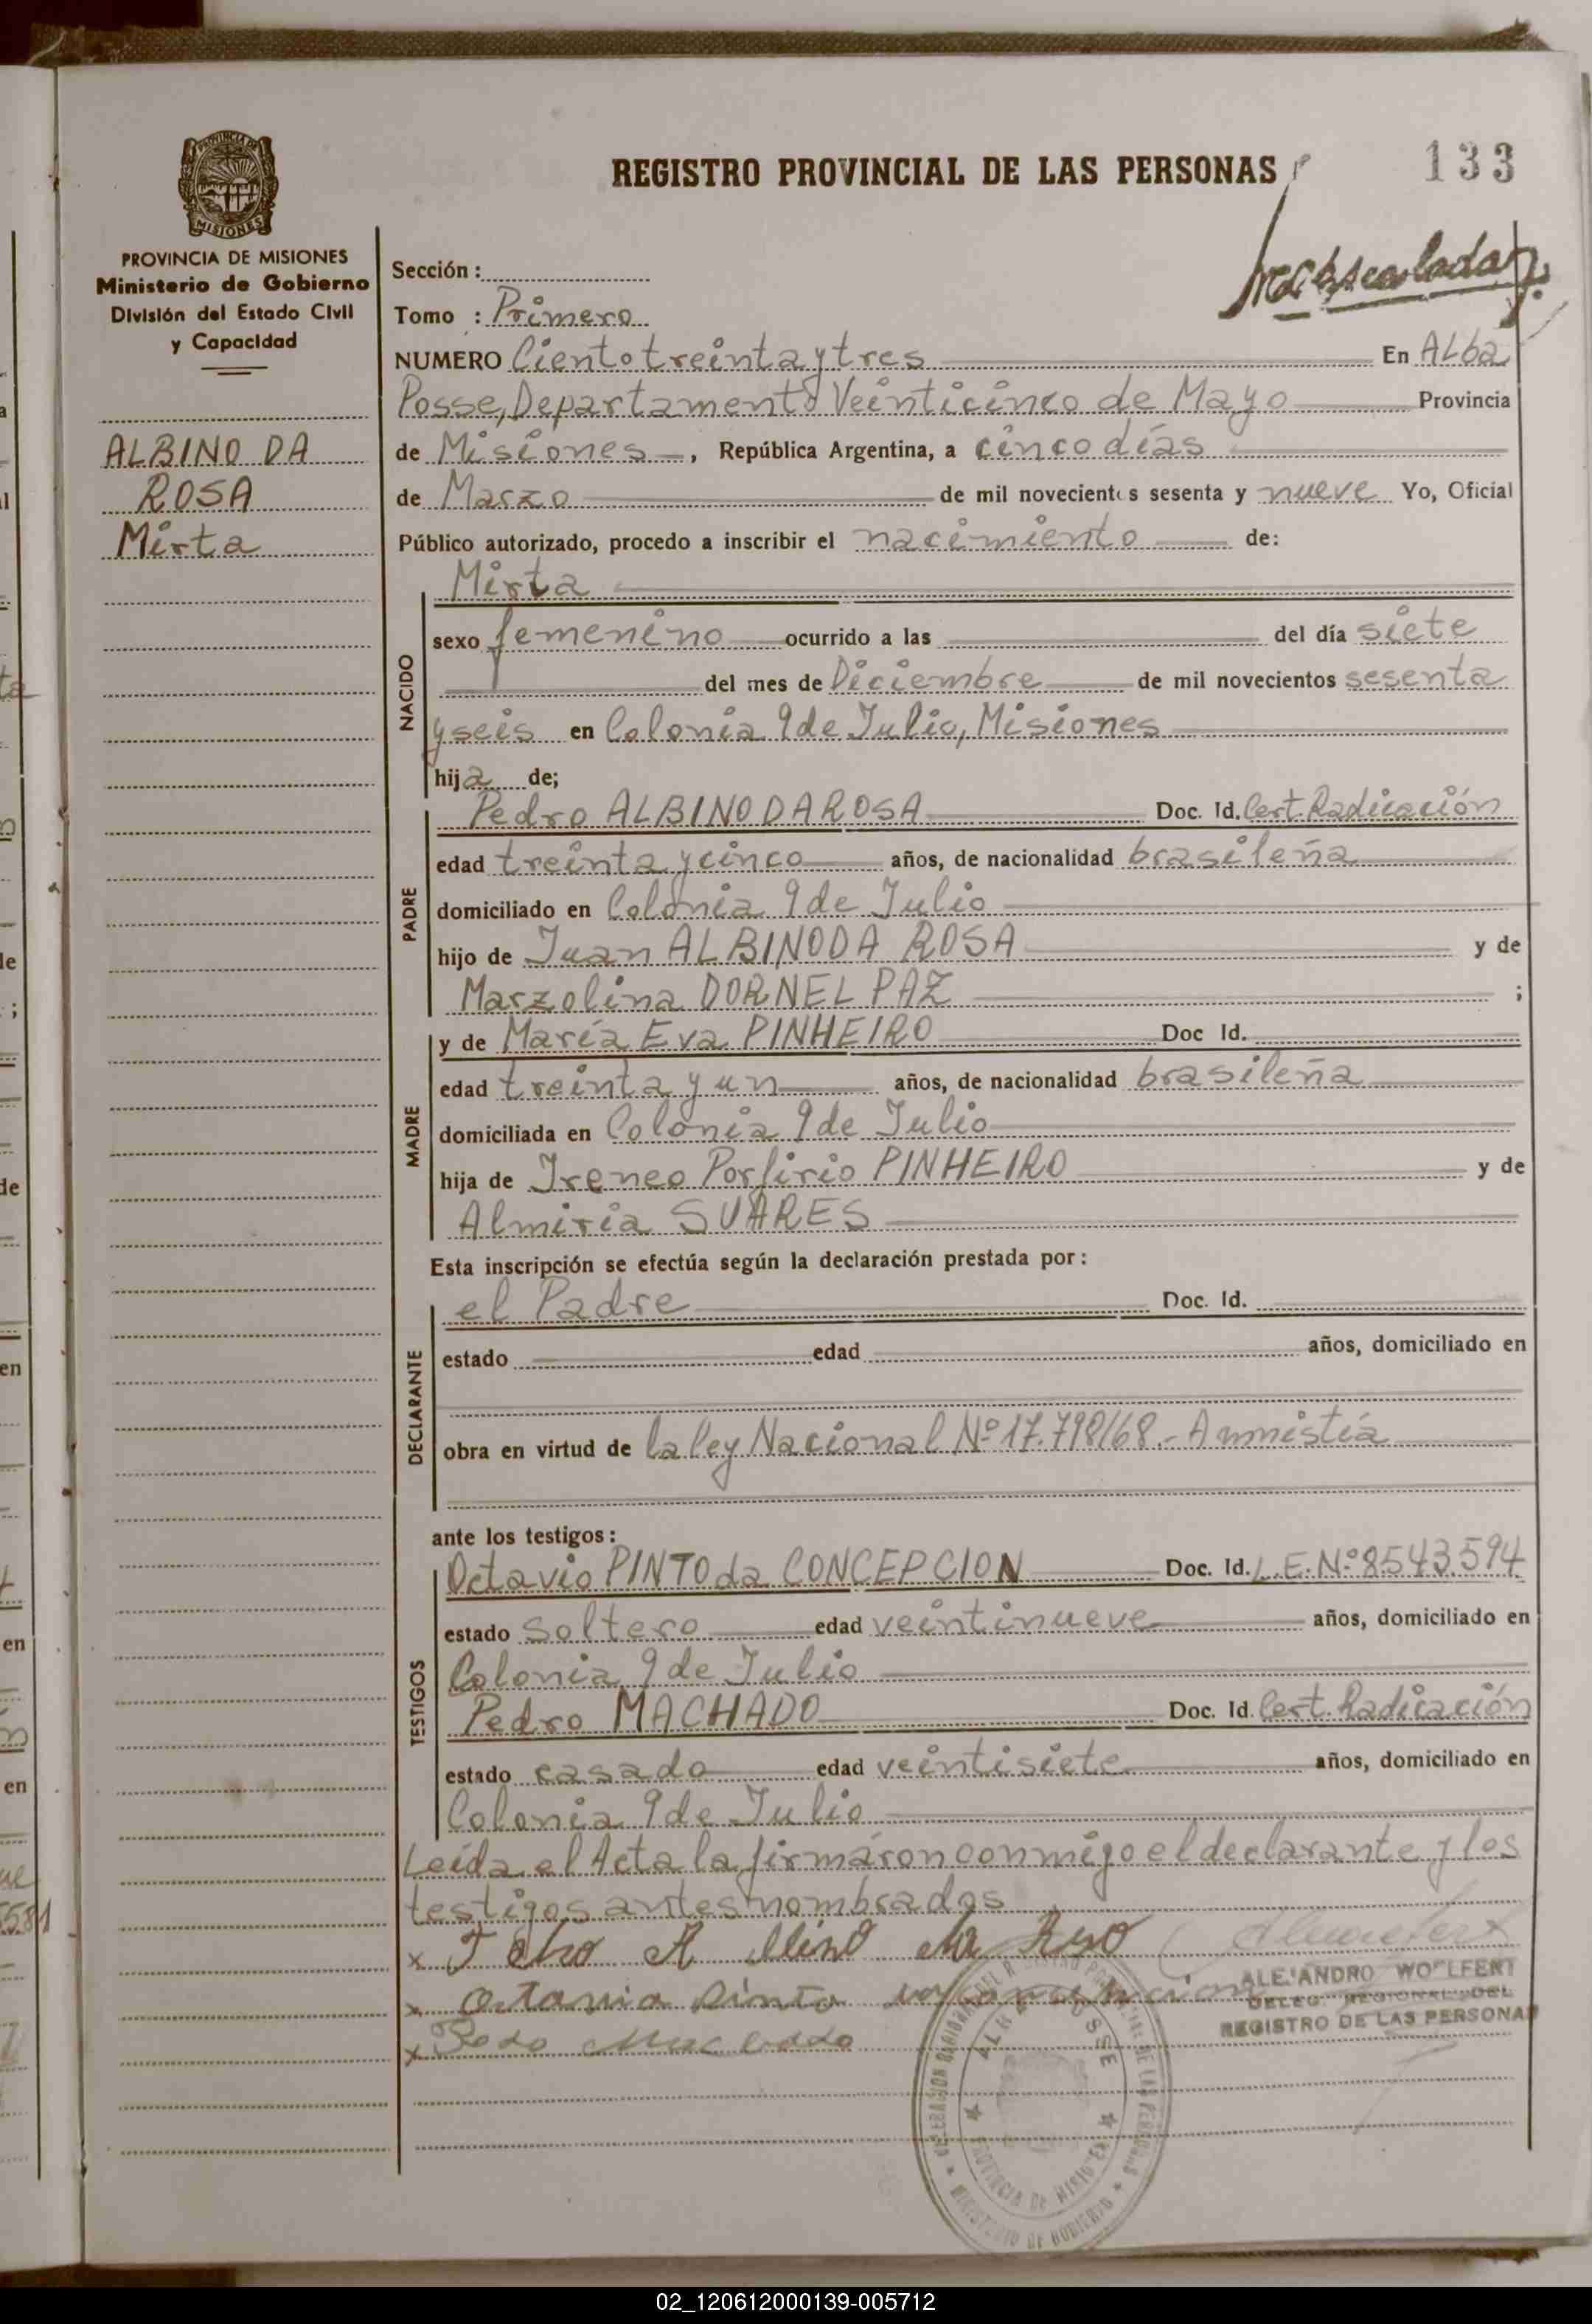 REGISTRO PROVINCIAL DE LAS PERSONAS
133
PROVINCIA DE
MISIONES
PROVINCIA DE MISIONES
Ministerio de Gobierno
División del Estado Civil
y Capacidad
ALBINO DA
ROSA
Mirta
Sección :
Tomo : Primero
NUMERO Ciento treinta y tres En ALba
Posse, Departamento Veinticinco de Mayo Provincia
de Misiones, República Argentina, a cinco días
de Marzo de mil novecientos sesenta y nueve Yo, Oficial
Público autorizado, procedo a inscribir el nacimiento de:
Mirta
NACIDO
sexo femenino ocurrido a las del día siete
del mes de Diciembre de mil novecientos sesenta
y seis en Colonia 9 de Julio, Misiones
hija de;
PADRE
Pedro ALBINO DA ROSA Doc. Id. Cert. Radicación
edad treinta y cinco años, de nacionalidad brasileña
domiciliado en Colonia 9 de Julio
hijo de Juan ALBINO DA ROSA y de
Marzolina DORNEL PAZ ;
MADRE
y de María Eva PINHEIRO Doc Id.
edad treinta y un años, de nacionalidad brasileña
domiciliada en Colonia 9 de Julio
hija de Ireneo Porfirio PINHEIRO y de
Almiria SUARES
Esta inscripción se efectúa según la declaración prestada por :
DECLARANTE
el Padre Doc. Id.
estado edad años, domiciliado en
obra en virtud de la ley Nacional Nº 17.798/68.- Amnistía
ante los testigos :
TESTIGOS
Octavio PINTO da CONCEPCION Doc. Id. L.E.Nº 8.543.594
estado soltero edad veintinueve años, domiciliado en
Colonia 9 de Julio
Pedro MACHADO Doc. Id. Cert. Radicación
estado casado edad veintisiete años, domiciliado en
Colonia 9 de Julio
Leída el Acta la firmáron conmigo el declarante y los
testigos antes nombrados
ALEJANDRO WOLFERT
DELEG. REGIONAL DEL
REGISTRO DE LAS PERSONAS
ALBA POSSE
PROVINCIA DE MISIONES
MINISTERIO DE GOBIERNO
02_120612000139-005712